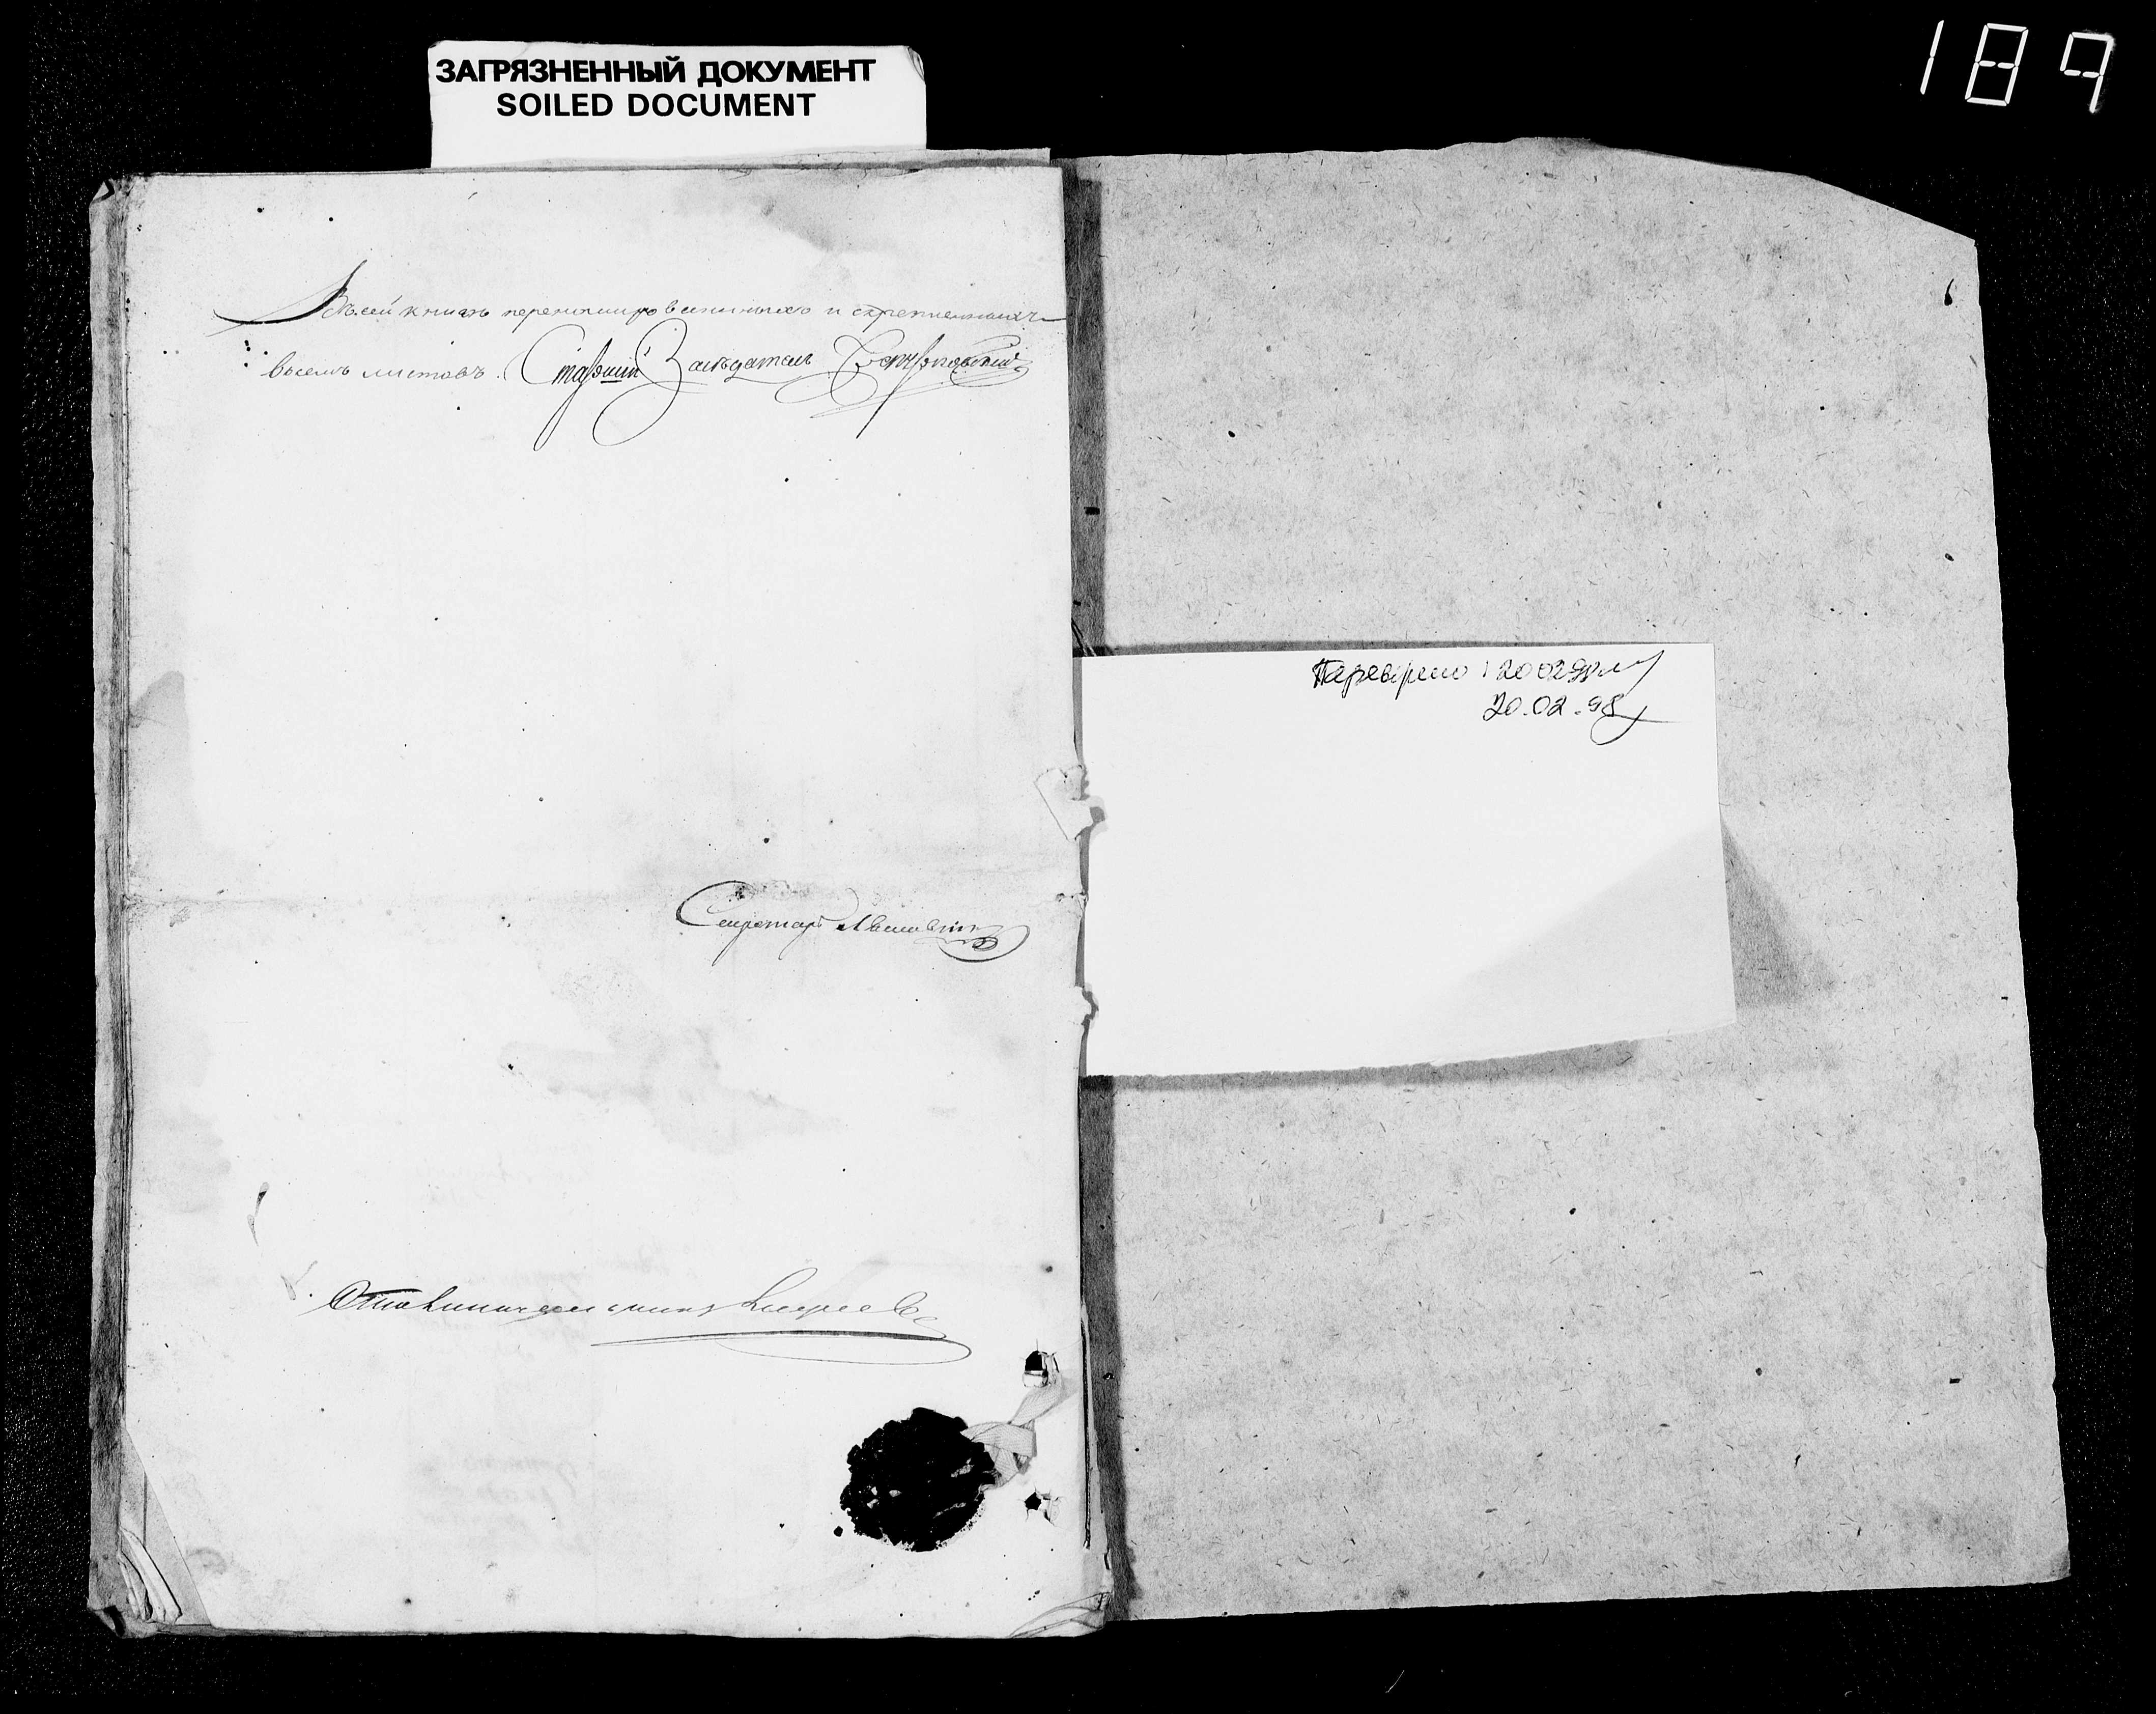 ЗАГРЯЗНЕННЫЙ ДОКУМЕНТ
SOILED DOCUMENT
189
Въ сей книгѣ перенумерованныхъ и скрепленныхъ
восемь листовъ. Старшій Засѣдатель
Секретарь
Столоначальникъ Киреевъ
20.02.98